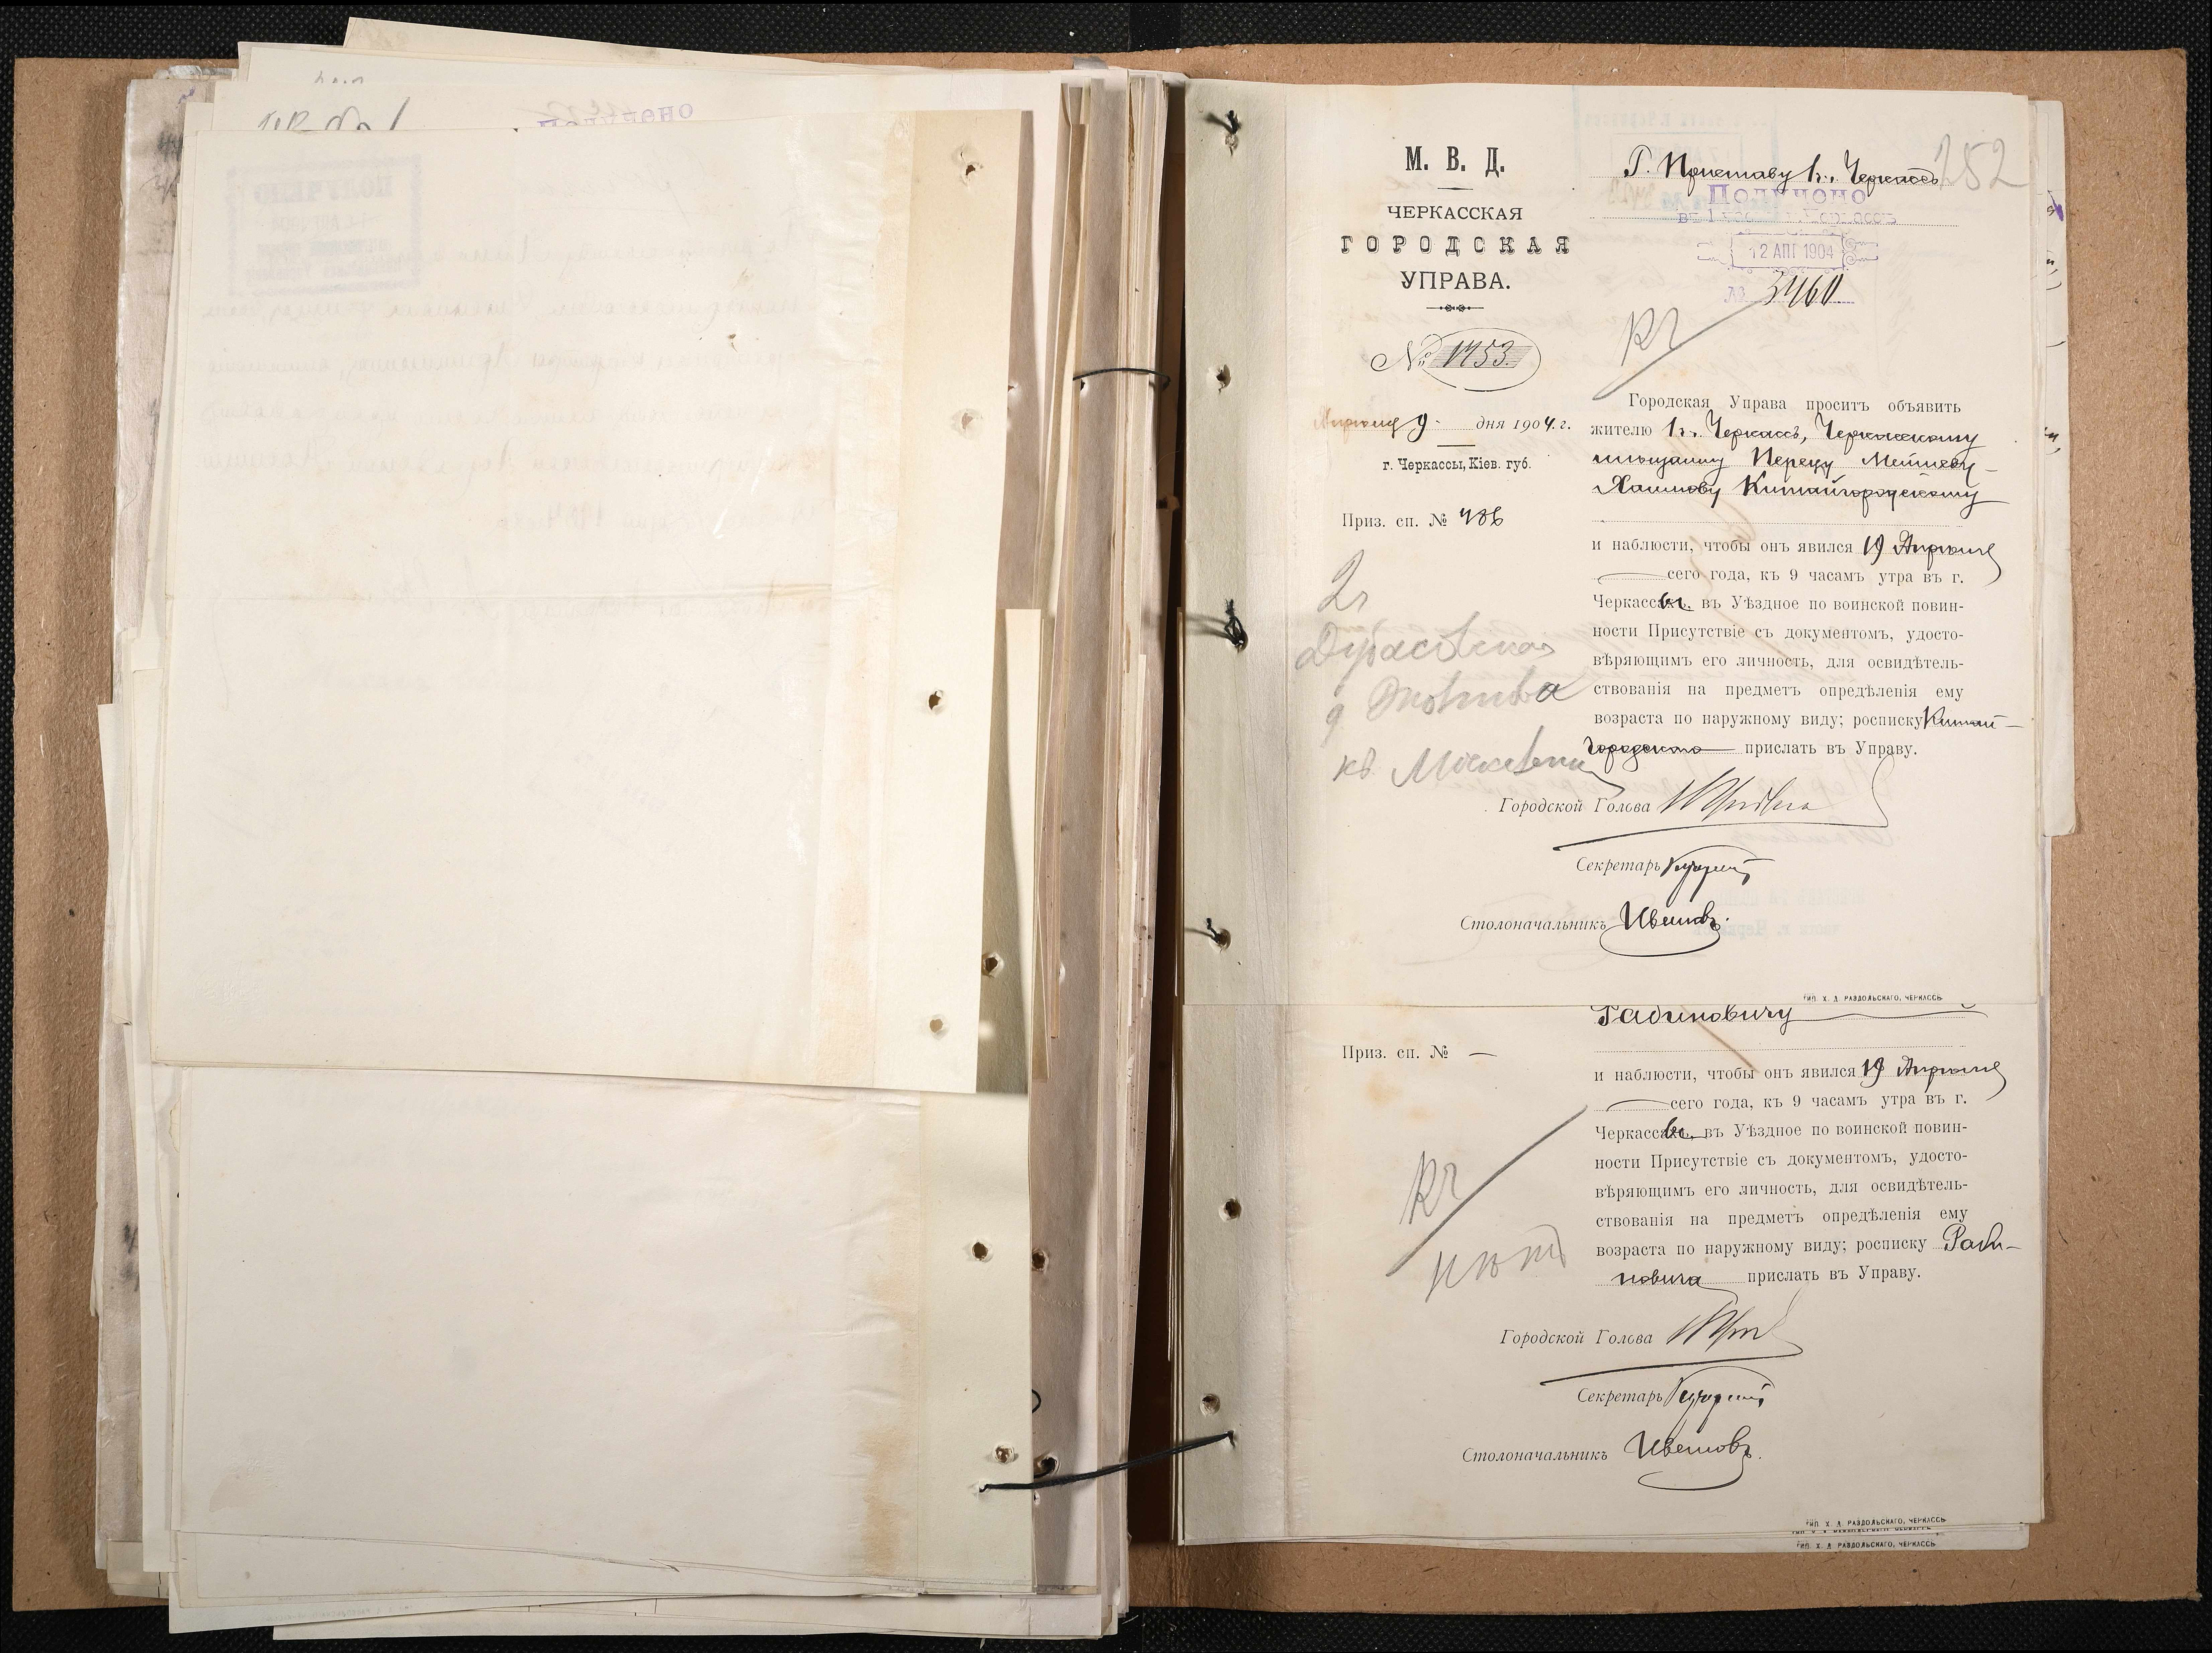 Получено
М. В. Д.
ЧЕРКАССКАЯ
ГОРОДСКАЯ
УПРАВА.
№ 1753.
Апрѣля 9 дня 1904. г.
г. Черкассы, Кіев. губ.
Приз. сп. № 486
252
Г. Приставу 1 ч. Черкассъ
Получено
12 АПР 1904
№ 3460
Городская Управа проситъ объявить
жителю г. Черкассъ, Черкасскому
мѣщанину Перецу Мошкову-
Хаимову Китайгородскому
и наблюсти, чтобы онъ явился 19 Апрѣля
сего года, къ 9 часамъ утра въ г.
Черкассахъ, въ Уѣздное по воинской повин-
ности Присутствіе съ документомъ, удосто-
вѣряющимъ его личность, для освидѣтель-
ствованія на предметъ опредѣленія ему
возраста по наружному виду; росписку Китай-
городскаго прислать въ Управу.
2 ч
д
къ
Городской Голова
Секретарь
Столоначальникъ Ивановъ.
ТИП. Х. Д. РАЗДОЛЬСКАГО, ЧЕРКАССЪ
Рабиновичу
Приз. сп. № —
и наблюсти, чтобы онъ явился 19 Апрѣля
сего года, къ 9 часамъ утра въ г.
Черкассахъ, въ Уѣздное по воинской повин-
ности Присутствіе съ документомъ, удосто-
вѣряющимъ его личность, для освидѣтель-
ствованія на предметъ опредѣленія ему
возраста по наружному виду; росписку Раби-
новича прислать въ Управу.
нѣтъ
Городской Голова
Секретарь
Столоначальникъ Ивановъ.
ТИП. Х. Д. РАЗДОЛЬСКАГО, ЧЕРКАССЪ
ТИП. Х. Д. РАЗДОЛЬСКАГО, ЧЕРКАССЪ